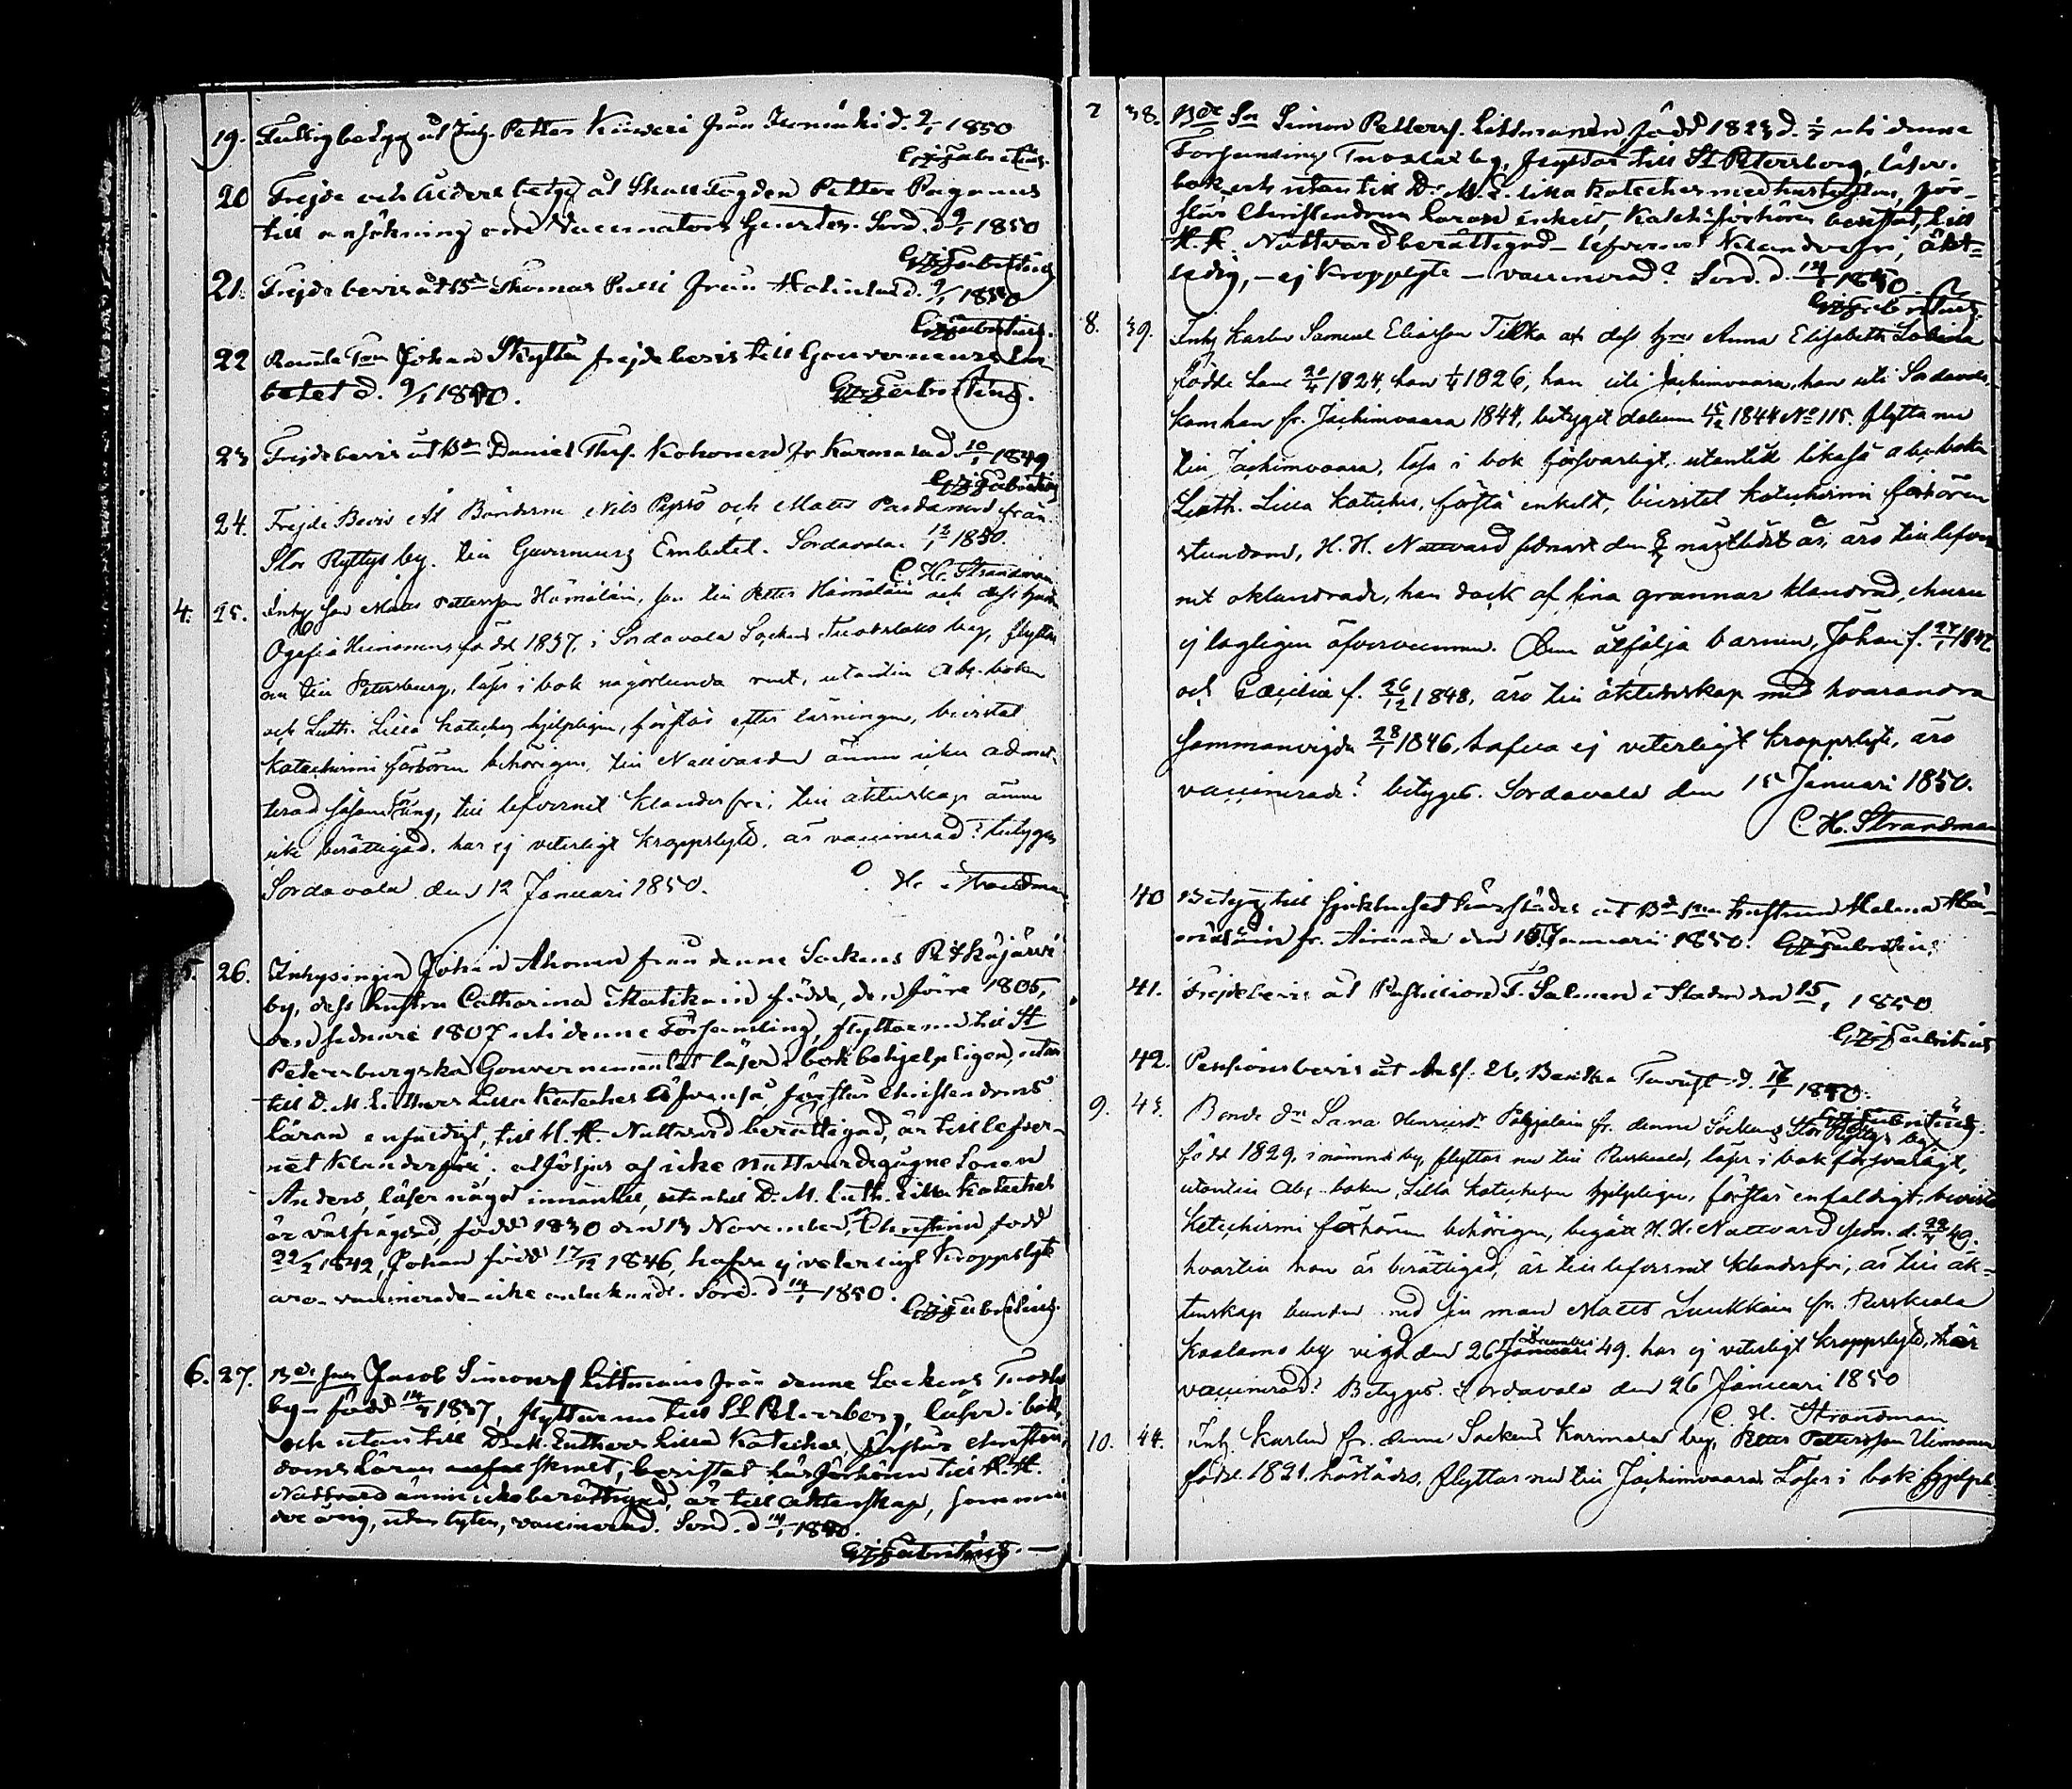 19. Fattigbetyg åt Inh. Petter Kiiweri från 2/1 1850
20 Frejde och Ålders betyg åt Petter Paganus
till ansökning om Vaccinators Sord. d. 9/1 1850
21. Frejdebevis åt Bd Thomas Pulli från d. 9/1 1850
22 Johan Skyttä frejdebevis till Gouverneurs Em-
betet d. 9/1 1850.
23 Frejdebevis åt Bdn Daniel Thsf. Kohonen fr Karmala d. 10/1 1849
24. Frejde Bevis åt Bönderne Nils Pyssö och Matts Pardanen från
Stor Ryttys by. till Guverneurs Embetet. Sordavala. 12/1 1850.
C. H. Strandman
4. 25. Inhy son Matts Pettersson Hämäläin, son till Petter Hämäläin och dess hustru
Heinonens född 1837, i Sordavala Sockens by, flyttar
nu till Petersburg, läser i bok någorlunda rent, utantill Abc-boken
och Luth. Lilla Kateches hjelpligen, förstår efter lärningen, bevistat
Katechismi förhören behörigen, till Nattvarden ännu icke admit-
terad såsom yng, till lefvernet klanderfri, till äktenskap ännu
icke berättigad. har ej veterligt kroppslyte. är vaccinerad? betygas
Sordavala den 12 Januari 1850. C. H. Strandman
5. 26. Inhysingen Johan Ahonen från denne Sockens Pitkäjärvi
by, dess hustru Catharina födda, den förre 1805,
den sednare 1807 uti denne Församling, flyttar nu till St
Petersburgska Gouvernementet läser i bok behjelpligen, utan
till D. M. Luthers Lilla Kateches förstår Christendoms
läran enfaldigt, till H. H. Nattvard berättigad, är till lefver-
net klanderfri. åtföljas af icke Nattvardsgågne Sonen
Anders, läser något innantill, utantill D. M. Luth. Lilla Kateches
är välfrägdad, född 1830 den 13 November, Christina född
22/2 1842, Johan född 17/12 1846, hafva ej veterligt kroppslyte
äro vaccinerade Sord. d 14/1 1850.
6. 27. Bde son Jacob Simonsf Littmain från denne Sockens
by - född 14/7 1837, flyttar nu till St Petersberg, läser i bok,
och utantill Dr M. Luthers Lilla Kateches, förstår christen-
doms Läran bevistat läsförhören till H. H.
Nattvard ännu icke berättigad, är till äktenskap,
utan lyten, vaccinerad. Sord. d 14/1 1850.
7 38. Bde Sn Simon Pettersf. Littmanen född 1823 d. uti denne
Församlings by, flyttar till St Petersborg, läser i
bok och utantill Dr M. L. Lilla Kateches med hustaflan, för-
står Christendoms läran enkelt, Katech-förhören bevistat, till
H. H. Nattvard berättigad - lefvernet klanderfri, äkt-
ledig, - ej kroppslyte - vaccinerad? Sord. d. 14/1 1850.
8. 39. Inhy karlen Samuel Eliasson Tikka och dess hru Anna Elisabeth
födde han 20/4 1824, hon 1826, han uti Jachimvaara, hon uti Sordavala,
kom han fr. Jachimvaara 1844, betyget dateradt 15/12 1844 No 115. flytta nu
till Jachimvaara, läsa i bok försvarligt, utantill likaså abc-boken
Luth. Lilla Kateches, förstå enkelt, bevistat katechismi förhören
stundom, H. H. Nattvard sednast den nästledit år, äro till lefver-
net oklandrade, han dock af sina grannar klandrad, churu
ej lagligen öfvervunnen. Dem åtfölja barnen, Johan f. 27/1 1847
och Cæcilia f. 26/12 1848, äro till äktenskap med hvarandra
sammanvigda 28/1 1846, hafva ej veterligt kroppslyte, äro
vaccinerade? betygas. Sordavala den 15 Januari 1850.
C. H. Strandman
40 Betyg till Sjukhuset härstädes åt Bde hustrun Helena
fr. Airanda den 15 Januari 1850.
41. Frejdebevis åt Postillion F. Salmen i Staden den 15/1 1850
42. Pensionsbevis åt d. 17/1 1850.
9. 43. Bonde dr Sara Henriksdr Pohjalain fr. denne Sockens Stor Ryttys by
född 1829, i nämnde by, flyttar nu till Ruskeala, läser i bok försvarligt,
utantill Abc-boken, Lilla Katechesen hjelpligen, förstår enfaldigt, bevistat
Katechismi förhören behörigen, begått H. H. Nattvard sedn. d. 49.
hvartill hon är berättigad, är till lefvernet klanderfri, är till äk-
tenskap bunden med sin man Matts Luukkain fr. Ruskeala
Kaalamo by vigd den 26 December 49. har ej veterligt kroppslyte, är
vaccinerad? Betygas. Sordavala den 26 Januari 1850
C. H. Strandman
10. 44. Inh. karlen fr. denne Sockens Karmala by, Petter Pettersson Uimonen
född 1821 härstädes, flyttar nu till Jachimvaara Läser i bok hjelpl.